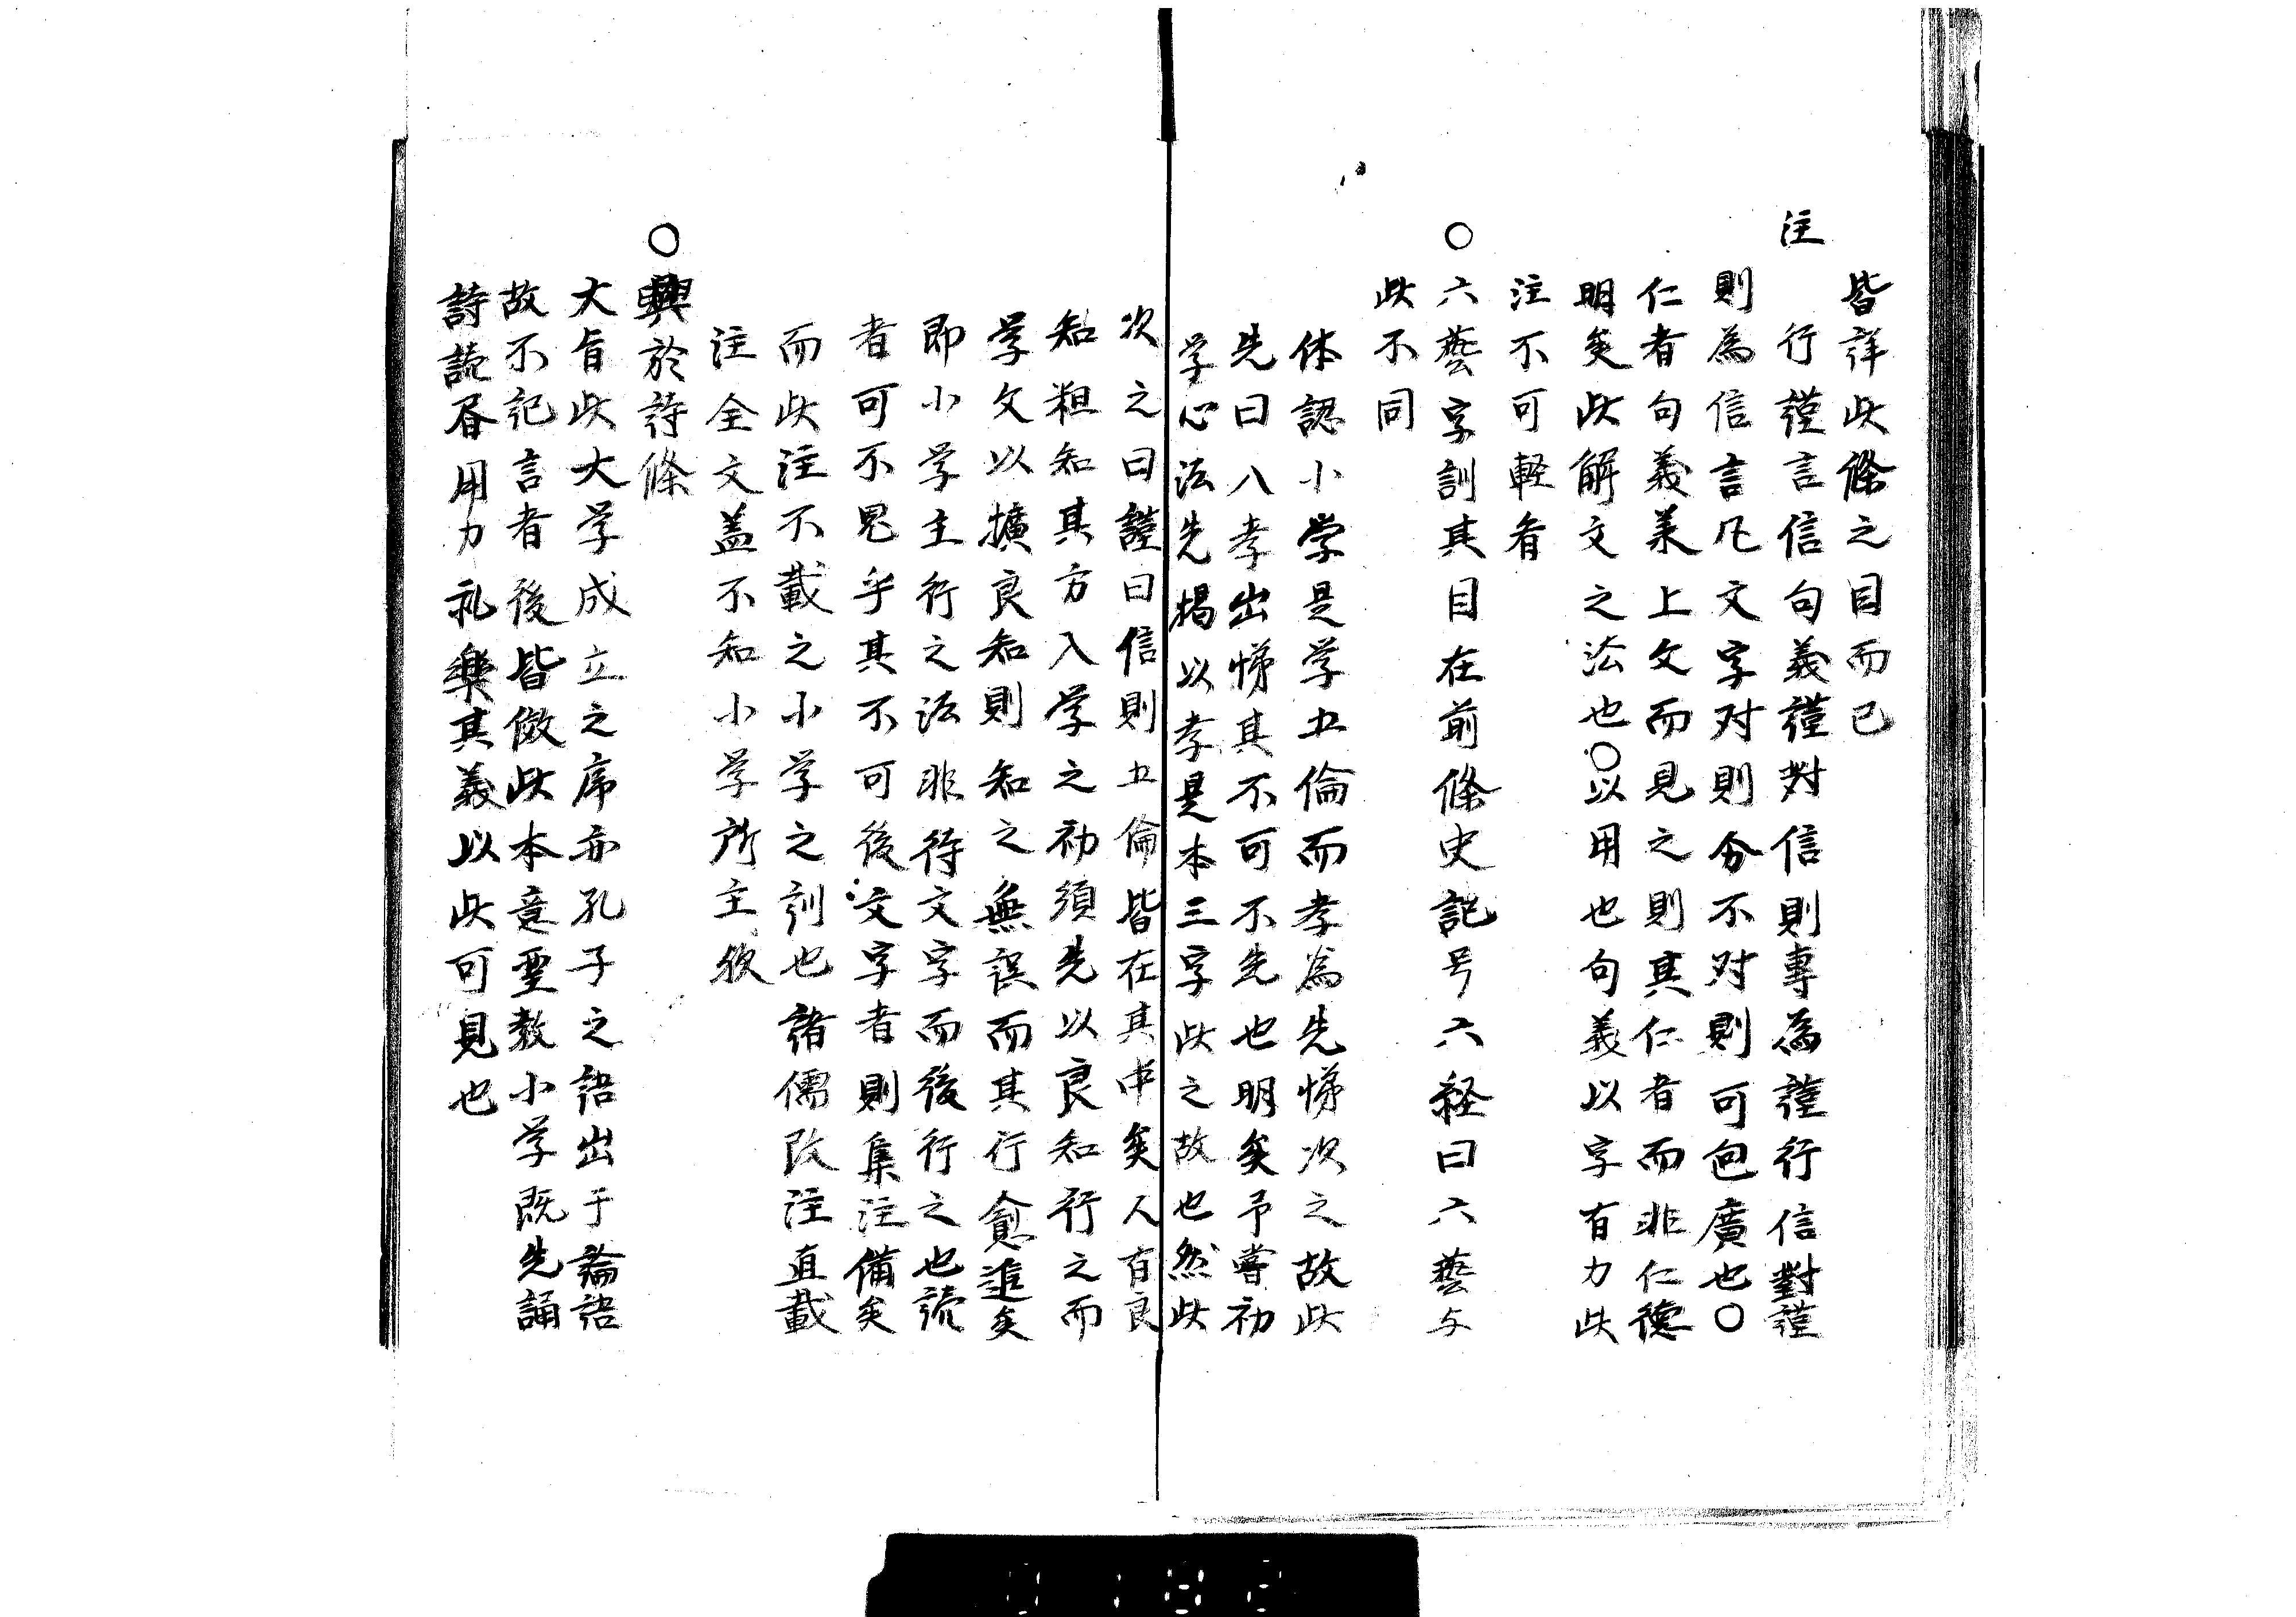 皆詳此條之目而已
注　行謹言信句義謹對信則專為謹行信對謹
則為信言凡文字対則分不対則可包廣也○
仁者句義兼上文而見之則其仁者而非仁德
明矣此解文之法也○以用也句義以字有力此
注不可輕看
○六藝字訓其目在前條史記号六経曰六藝与
此不同
体認小学是学五倫而孝為先悌次之故此
先曰入孝出悌其不可不先也明矣予嘗初
学心法先揭以孝是本三字此之故也然此
次之曰謹曰信則五倫皆在其中矣人有良
知粗知其方入学之初須先以良知行之而
学文以擴良知則知之無誤而其行愈進矣
即小学主行之法非待文字而後行之也読
者可不思乎其不可後文字者則集注備矣
而此注不載之小学之訓也諸儒改注直載
注全文盖不知小学所主故
○興於詩條
大旨此大学成立之序亦孔子之語出于論語
故不記言者後皆倣此本意聖教小学既先誦
詩読 用力礼樂其義以此可見也